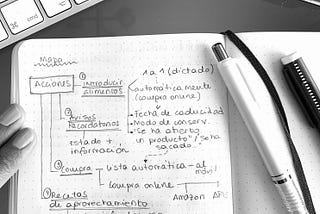 Mapa
ACCIONES
① INTRODUCIR ALIMENTOS
1 a 1 (dictado)
automáticamente
(compra online)
② Avisos
Recordatorios
estado +
información
Fecha de caducidad
Modo de conserv.
"Se ha abierto
un producto"/"se ha
sacado..."
③ Compra
lista automática - al
móvil
compra online
Amazon
④ Recetas
de aprovechamiento